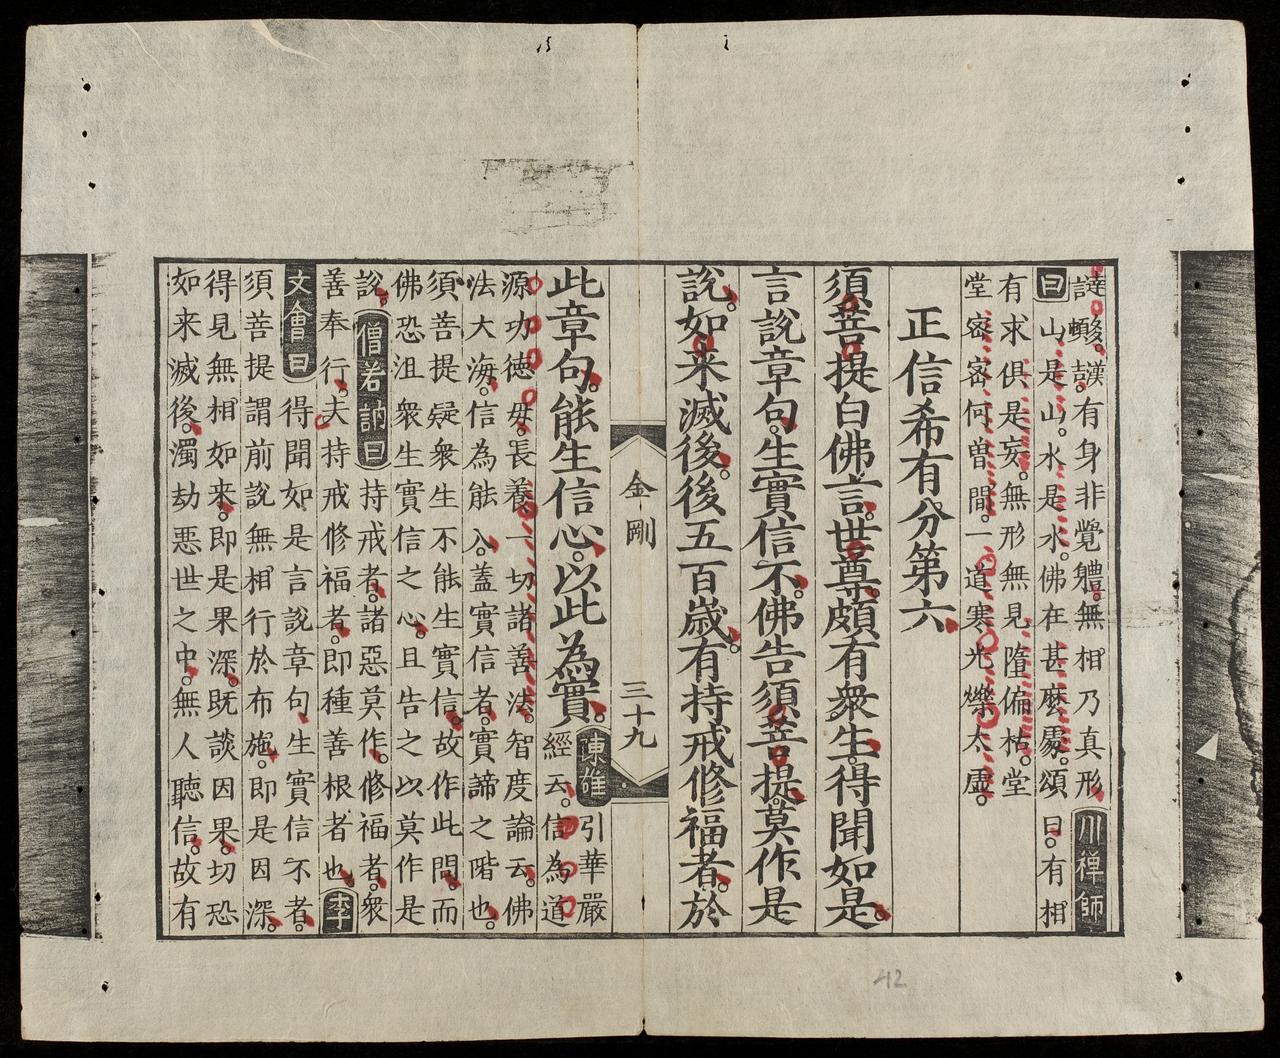 有身非覺體。無相乃真形川禪師
曰山是山。水是水。佛在甚麼處。頌曰。有相
有求俱是妄。無形無見墮偏枯。堂
堂密密何曽間。一道寒光爍太虛。
正信希有分第六
須菩提白佛言。世尊。頗有衆生。得聞如是
言說章句。生實信不。佛告須菩提。莫作是
說。如来滅後。後五百歳。有持戒修福者。於
金剛 三十九
此章句。能生信心。以此為實。陳雄引華嚴
經云。信為道
源功德母。長養一切諸善法。智度論云。佛
法大海。信為能入。蓋實信者。實諦之階也。
須菩提疑衆生不能生實信。故作此問。而
佛恐沮衆生實信之心。且告之以莫作是
說。僧若訥曰持戒者。諸惡莫作。修福者。衆
善奉行。夫持戒修福者。即種善根者也。李
文會曰得聞如是言說章句生實信不者。
須菩提謂前說無相行於布施。即是因深。
得見無相如来。即是果深。既談因果。切恐
如来滅後。濁劫惡世之中。無人聽信。故有
42